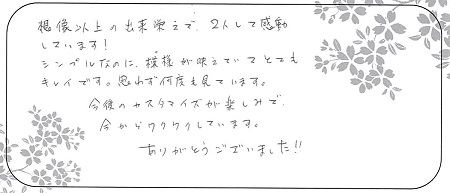 想像以上の出来栄えで、2人して感動
しています!
シンプルなのに、模様が映えていてとても
キレイです。思わず何度も見ています。
今後のカスタマイズが楽しみで
今からワクワクしています。
ありがとうございました!!